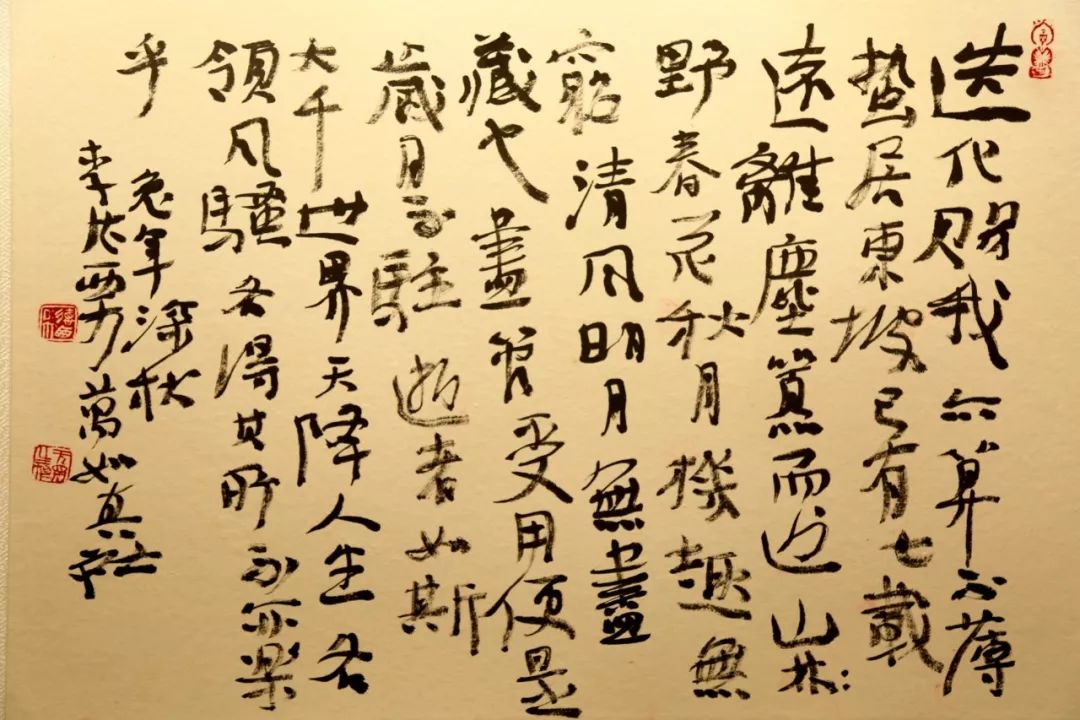 造化赐我亦算不薄
蟄居東坡已有七載
遠離塵囂而近山林
野春花秋月機趣無
窮清风明月無盡
藏也盡管受用便是
歲月不駐逝者如斯
大千世界天降人生各
領风騷各得其所不亦樂
乎
兔年深秋
李 萬如真